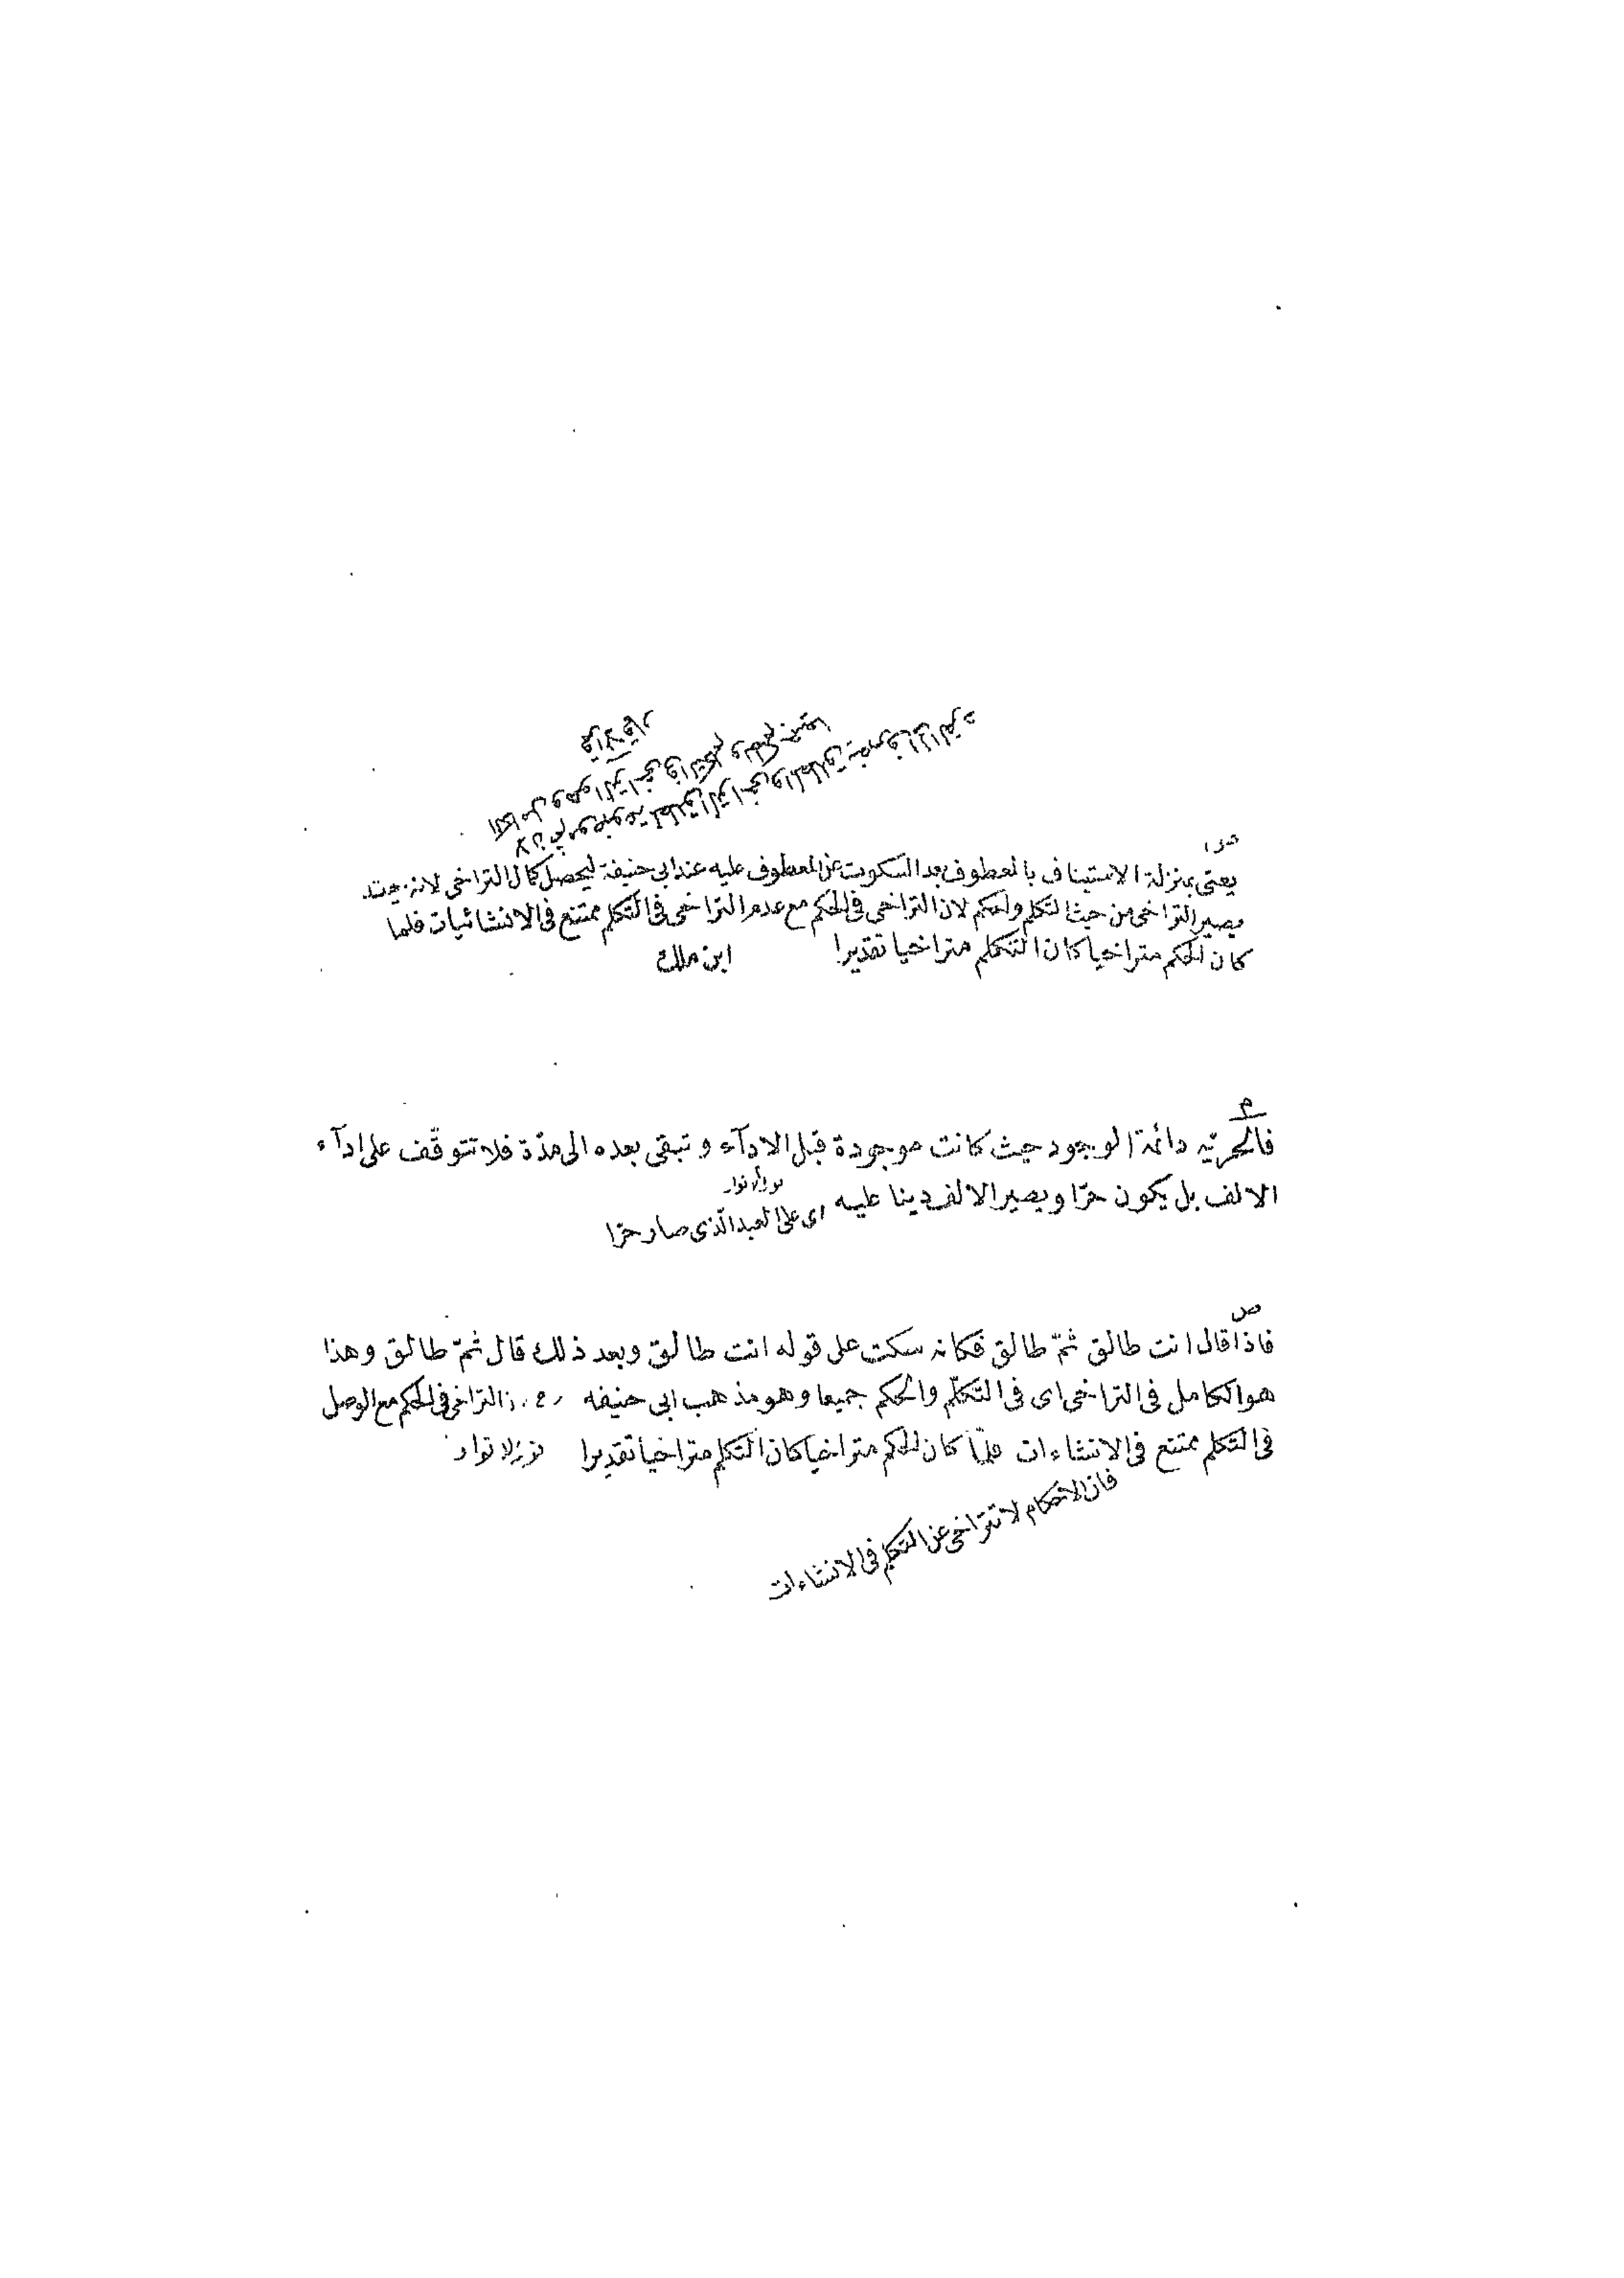 يعنى بمنزلة الاستيناف بالمعطوف بعد السكوت عن المعطوف عليه عند ابى حنيفة ليحصل كمال التراخى لانه حينئذ
يصير التراخى من حيث التكلم والحكم لان التراخى فى الحكم مع عدم التراخى فى التكلم ممتنع فى الانشائيات فلما
كان الحكم متراخيا كان التكلم متراخيا تقديرا ابن ملك
م
فالحريّه دائمة الوجود حيث كانت موجودة قبل الادآء و تبقى بعده الى مدّة فلا تتوقّف على ادآء
الالف بل يكون حرّا ويصير الالف دينا عليه
نور الانوار
اى على العبد الّذى صار حرّا
ص
فاذا قال انت طالق ثمّ طالق فكانه سكت على قوله انت طالق وبعد ذلك قال ثمّ طالق وهذا
هو الكامل فى التراخى اى فى التكلّم والحكم جميعا وهو مذهب ابى حنيفه التراخى فى الحكم مع الوصل
فى التكلم ممتنع فى الانشاءات فلمّا كان الحكم متراخيا كان التكلم متراخيا تقديرا نور الانوار
فان الاحكام لا تتراخى عن التكلم فى الانشاءات